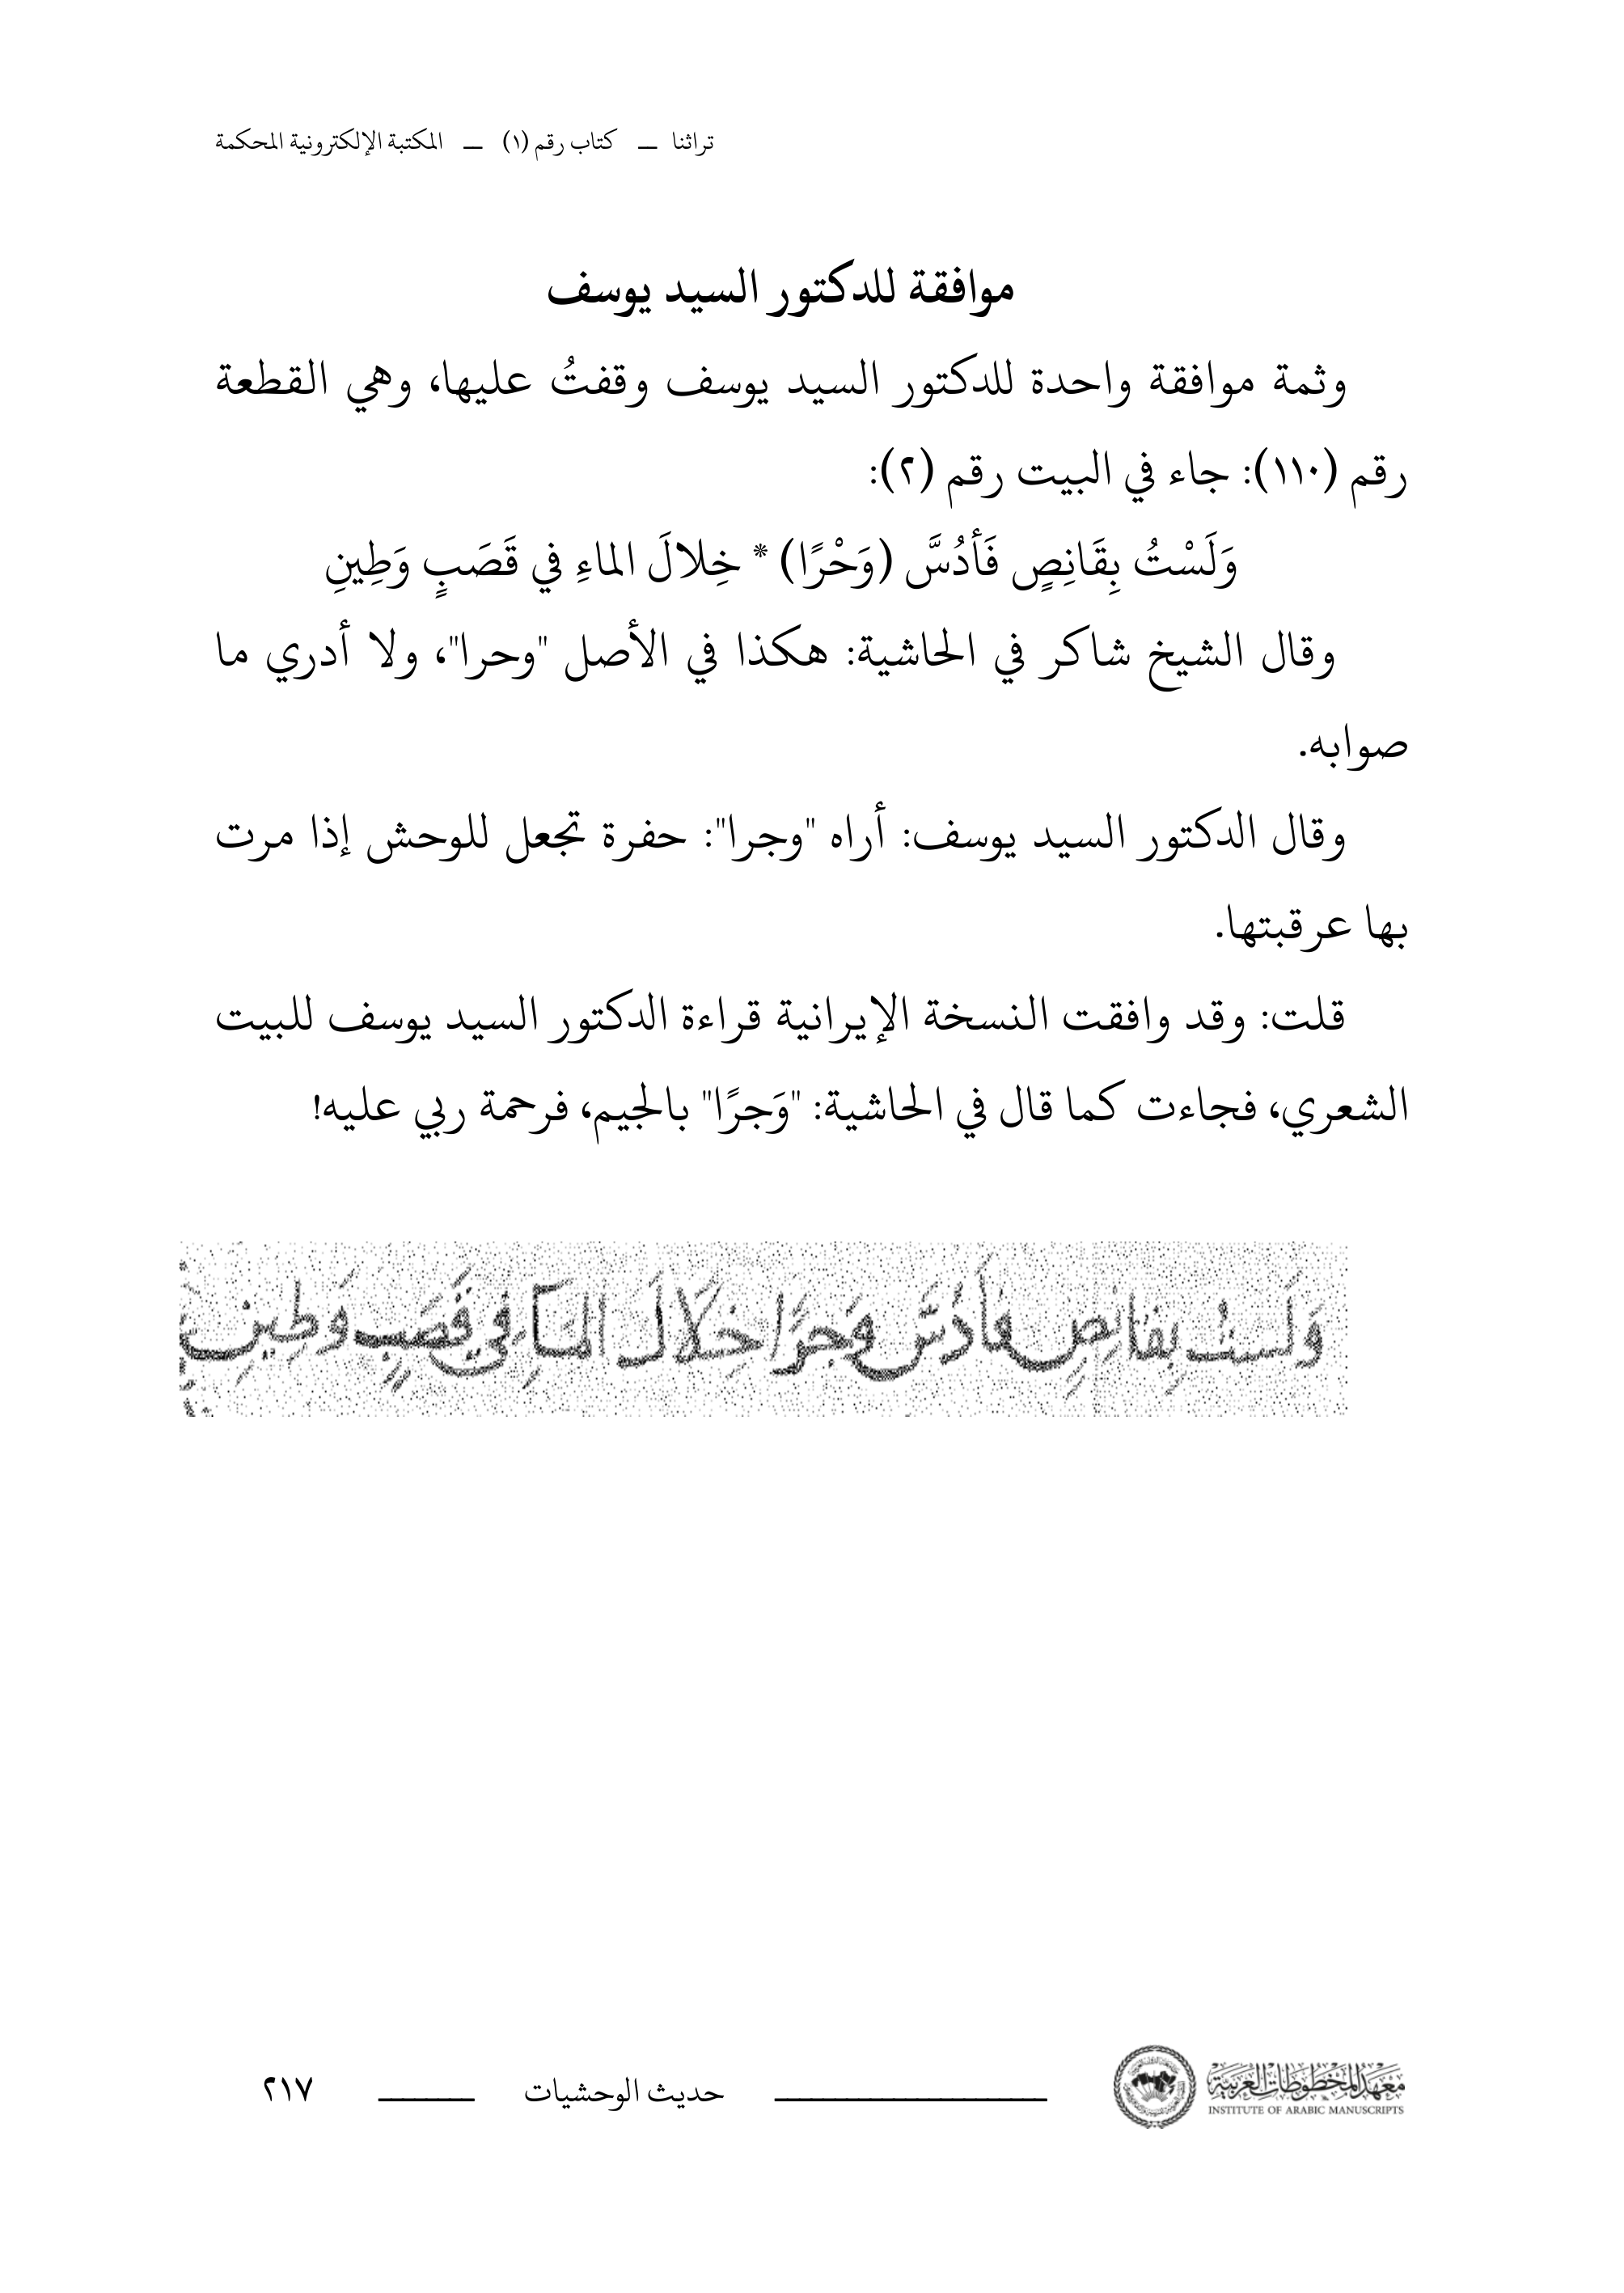 تراثنا ـــ كتاب رقم (١) ـــ المكتبة الإلكترونية المحكمة
موافقة للدكتور السيد يوسف
وثمة موافقة واحدة للدكتور السيد يوسف وقفتُ عليها، وهي القطعة
رقم (١١٠): جاء في البيت رقم (٢):
وَلَسْتُ بِقَانِصٍ فَأَدُسَّ (وَحْرًا) * خِلالَ الماءِ في قَصَبٍ وَطِينِ
وقال الشيخ شاكر في الحاشية: هكذا في الأصل "وحرا"، ولا أدري ما
صوابه.
وقال الدكتور السيد يوسف: أراه "وجرا": حفرة تجعل للوحش إذا مرت
بها عرقبتها.
قلت: وقد وافقت النسخة الإيرانية قراءة الدكتور السيد يوسف للبيت
الشعري، فجاءت كما قال في الحاشية: "وَجرًا" بالجيم، فرحمة ربي عليه!
وَلَستُ بِقانِصٍ فأَدُسَّ وَجرًا خِلَالَ المَاءِ في قَصَبٍ وَطِينِ
معهد المخطوطات العربية
INSTITUTE OF ARABIC MANUSCRIPTS
حديث الوحشيات
٢١٧